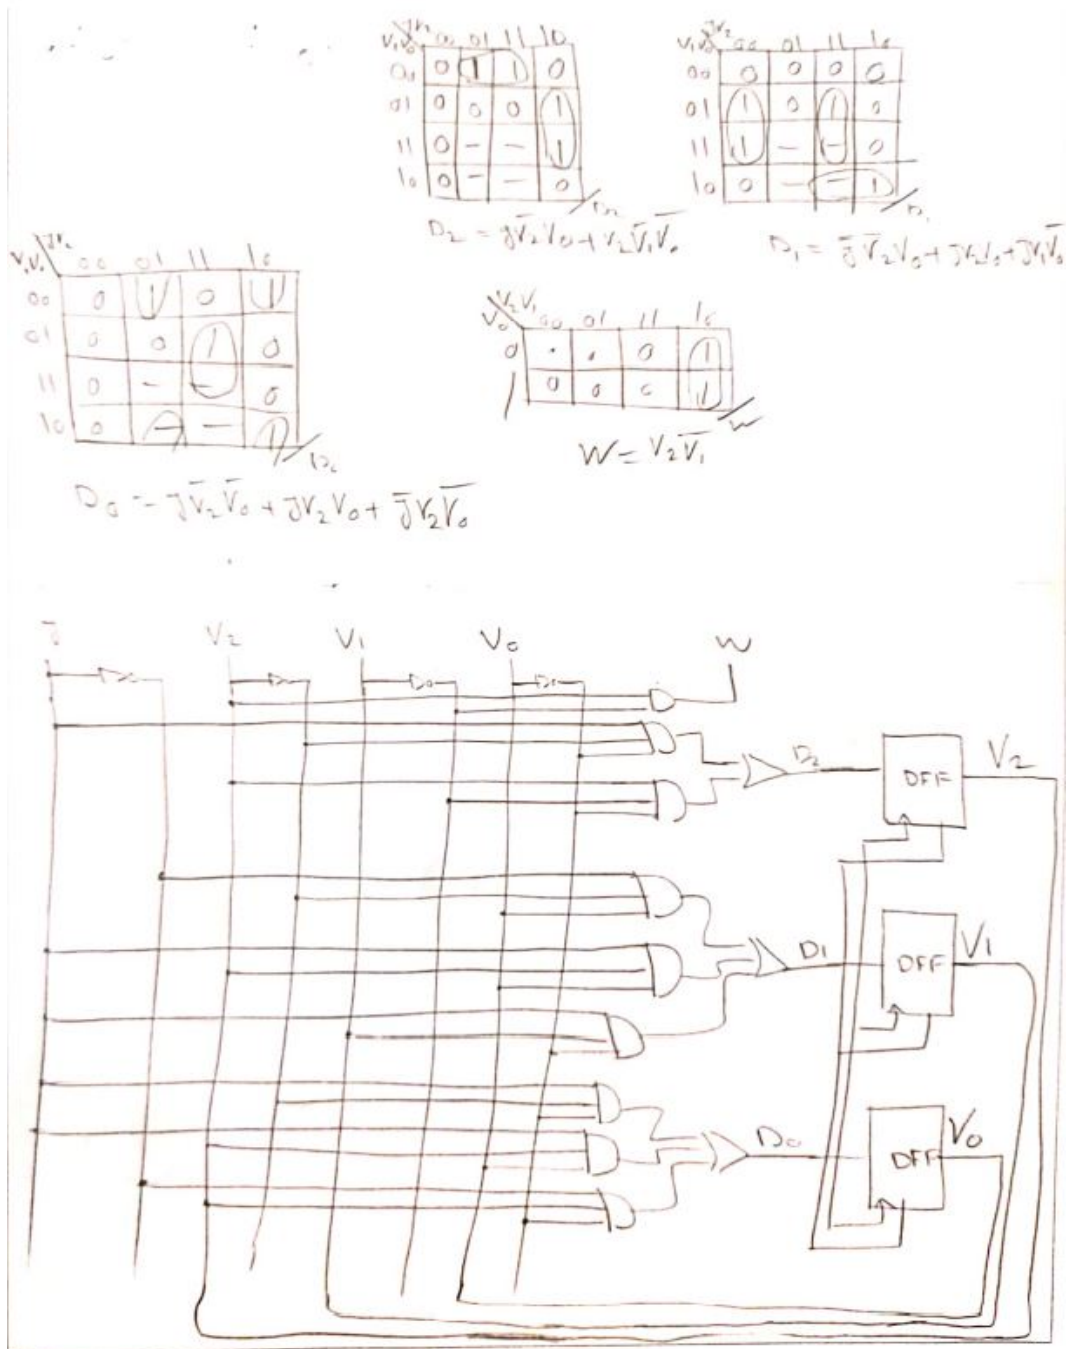 V₁V₀ JV₂ 00 01 11 10
00 0 1 1 0
01 0 0 0 1
11 0 - - 1
10 0 - - 0
D₂
D₂ = JV̅₂V₀ + V₂V̅₁V̅₀
V₁V₀ JV₂ 00 01 11 10
00 0 0 0 0
01 1 0 1 0
11 1 - - 0
10 0 - - 1
D₁
D₁ = J̅V̅₂V₀ + JV₂V₀ + JV₁V̅₀
V₁V₀ JV₂ 00 01 11 10
00 0 1 0 1
01 0 0 1 0
11 0 - - 0
10 0 - - 1
D₀
D₀ = JV̅₂V̅₀ + JV₂V₀ + J̅V₂V̅₀
V₀ V₂V₁ 00 01 11 10
0 . . 0 1
1 0 0 0 1
W
W = V₂V̅₁
J V₂ V₁ V₀ W
D₂ DFF V₂
D₁ DFF V₁
D₀ DFF V₀